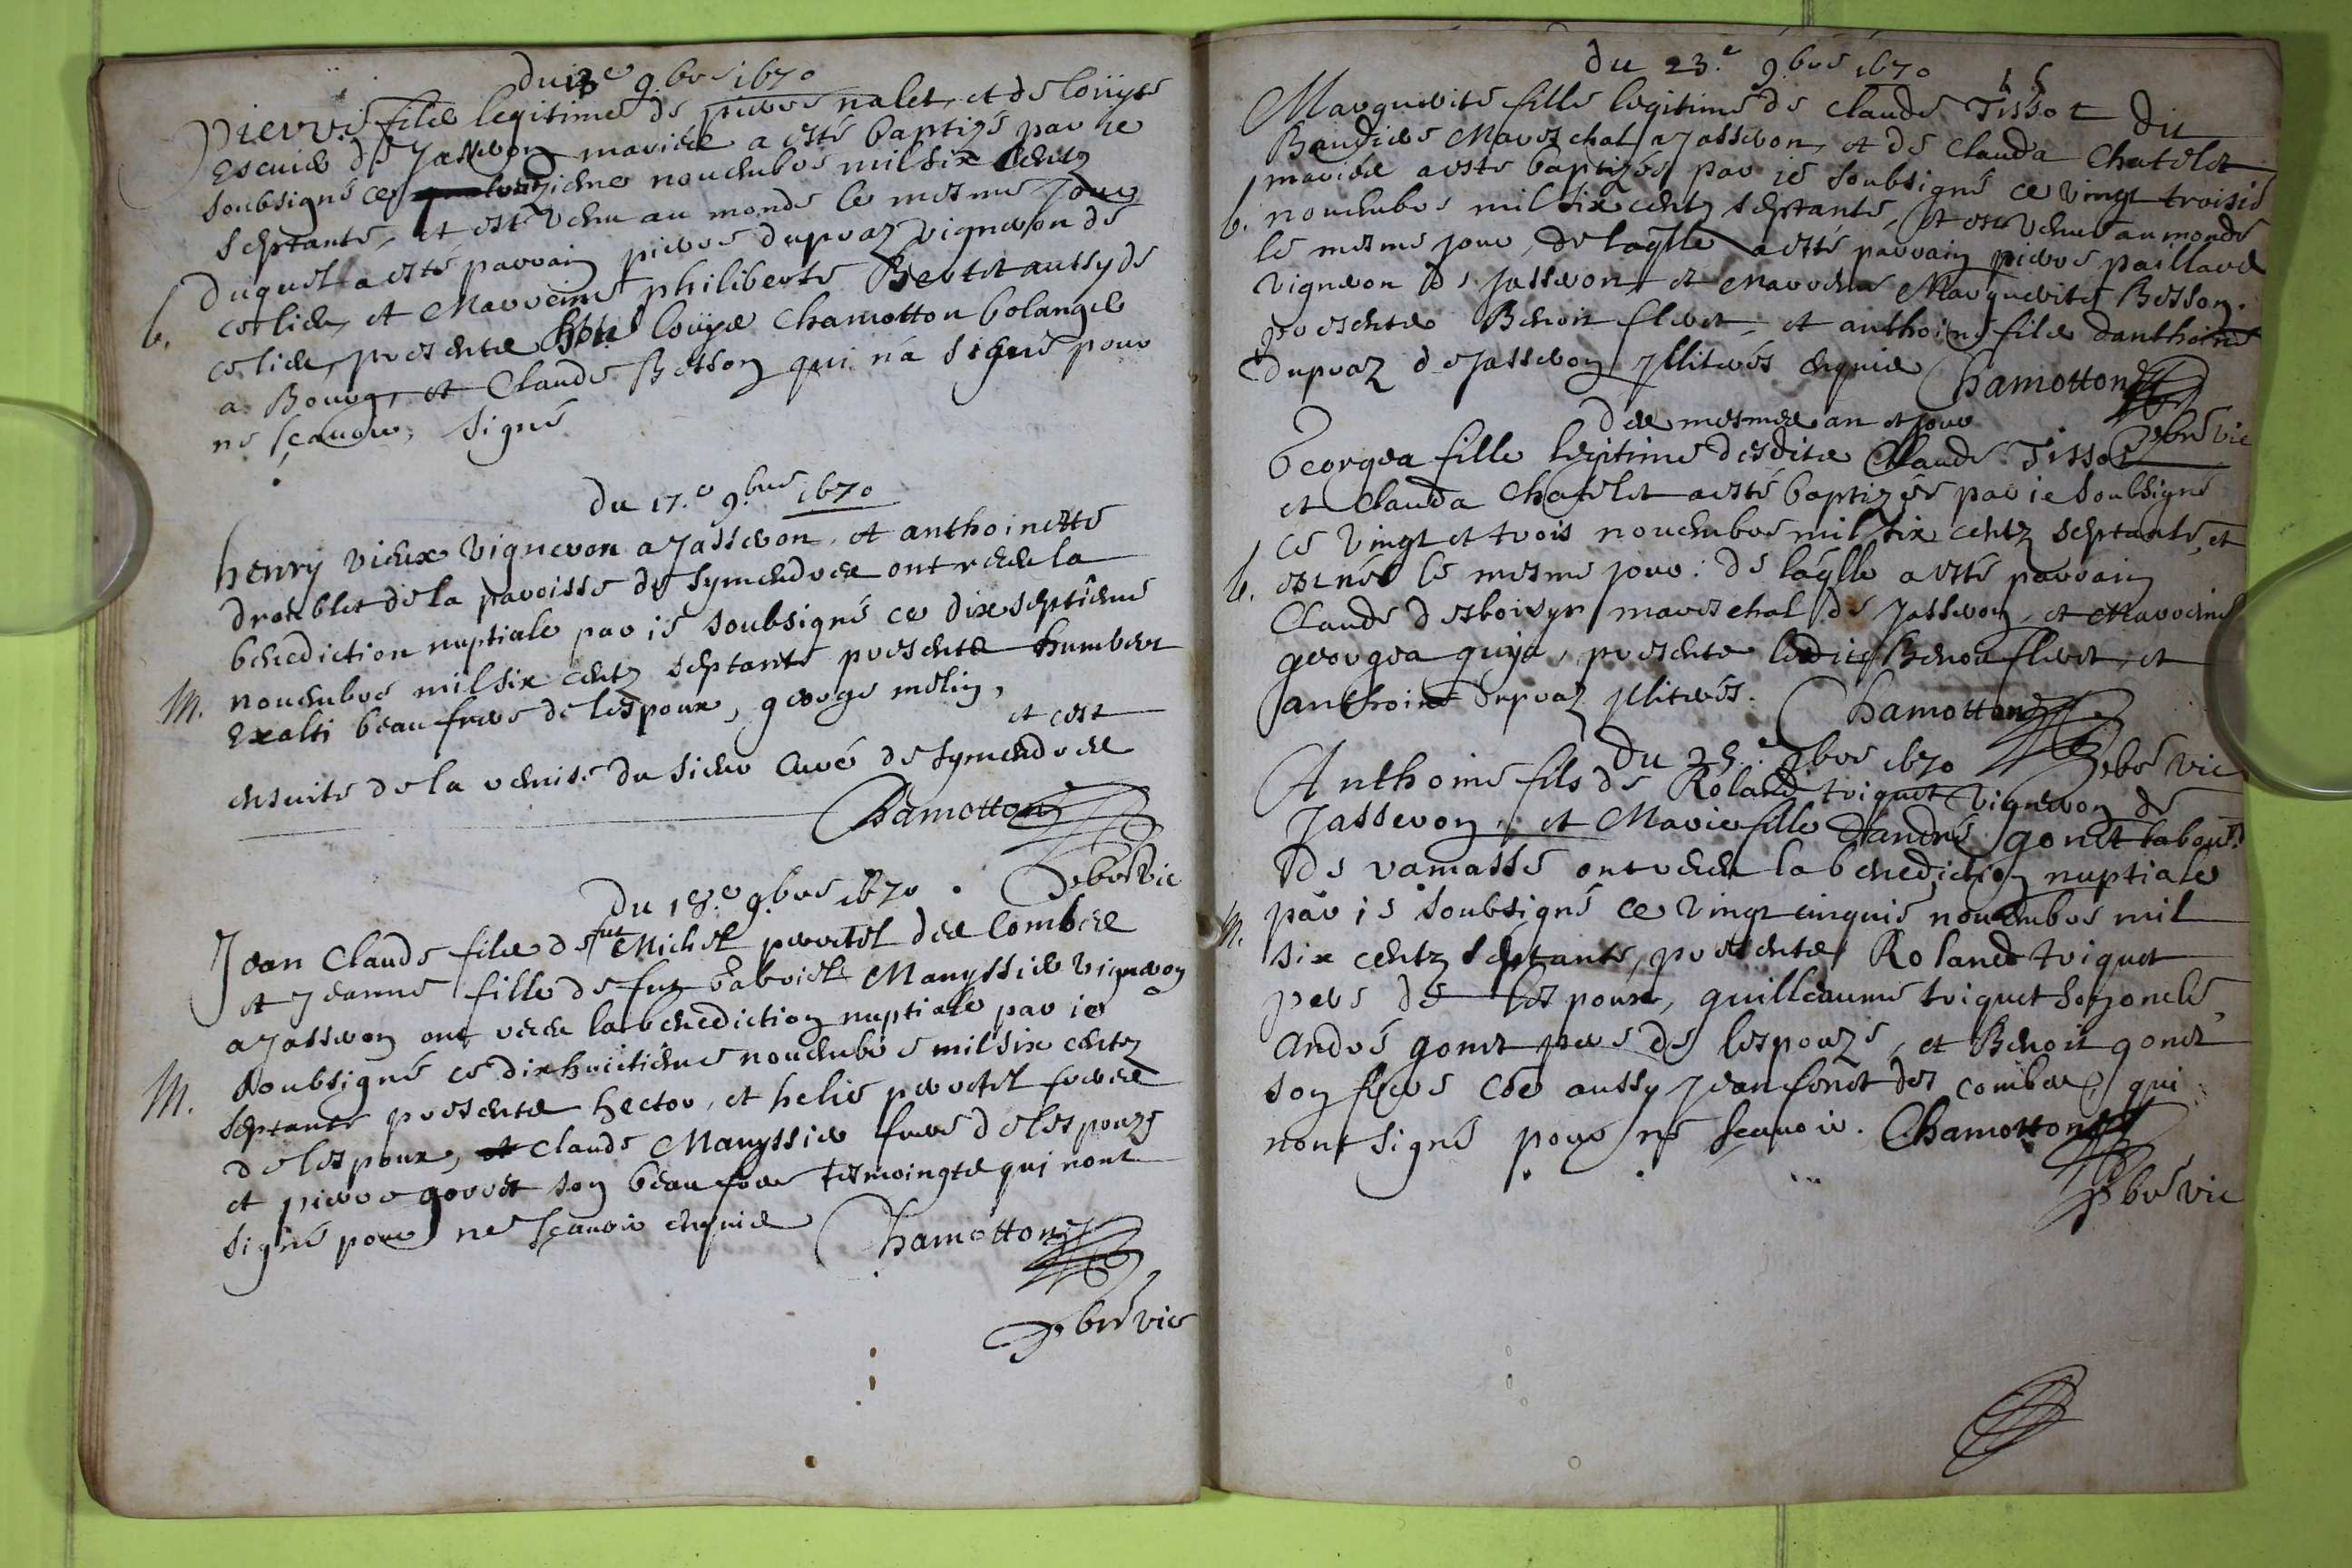 du 13e 9.bre 1670
Pierre filz legitime de pierre nalet, et de loüyse
Escuier de Jasseron mariez a esté baptizé par ie
soubsigné ce treiziéme nouembre mil six centz
septante, et est venu au monde le mesme jour
duquel a esté parrain pierre dupraz vigneron de
b. ce lieu, et Marreine philiberte Bertet aussy de
ce lieu, presente loüys Chamotton bolangé
a Bourg, et Claude Besson qui n'a signé pour
ne scauoir, signé
du 17.e 9.bre 1670
henry vieux vigneron a Jasseron, et anthoinette
de la paroisse de Symendrez ont receu la
benediction nuptiale par ie soubsigné ce dixseptiéme
M. nouembre mil six centz septante presentz humbert
Exalti beau frere de lespoux, george melin,
et cest
ensuite de la remise du sieur Curé de Symendrez
Chamotton
pbre vic
du 18.e 9.bre 1670
Jean Claude filz de fut Michel perretel des Combes
et Jeanne fille de fut Gabriel Manyssier vigneron
a Jasseron ont receu la benediction nuptiale par ie
M. soubsigné ce dixhuictiéme nouembre mil six centz
septante presentz hector, et helie perretel freres
de lespoux, et Claude Manyssier frere de lespouze
et pierre gorret son beau frere tesmoingtz qui nont
signé pour ne scauoir enquis Chamotton
pbre vic
du 23.e 9.bre 1670
15
Marguerite fille legitime de Claude Tissot dit
Bandier Mareschal a Jasseron, et de Clauda Chatelet
mariez a esté baptizée par ie soubsigné ce vingt troisié
b. nouembre mil six centz septante, et est venue au monde
le mesme jour, de laqlle a esté parrain pierre paillard
vigneron de Jasseron, et Marreine Marguerite Besson.
presentz Benoit fleret, et anthoine filz danthoine
dupraz de Jasseron Jllitrés enquis Chamotton
pbre vic
des mesmes an et jour
Georgea fille legitime desditz Claude Tissot
et Clauda Chatelet a esté baptizée par ie soubsigné
ce vingt et trois nouembre mil six centz septante, et
b. est née le mesme jour: de laqlle a esté parrain
Claude desboisyr mareschal de Jasseron, et Marreine
georgea guya, presentz lesditz Benoit fleret, et
anthoine dupraz Jllitrés. Chamotton
pbre vic
Du 25.e 9bre 1670
Anthoine fils de Roland triquet vigneron de
Jasseron, et Marie fille dandré gonet labour.
de ramasse ont receu la benediction nuptiale
M. par ie soubsigné ce vingt cinquié nouembre mil
six centz septante, presentz Roland triquet
pere de lespoux, guilleaume triquet son oncle,
André gonet pere de lespouze, et Benoit gonet
son frere cõe aussy Jean foret des combes, qui
nont signé pour ne scauoir. Chamotton
pbre vic